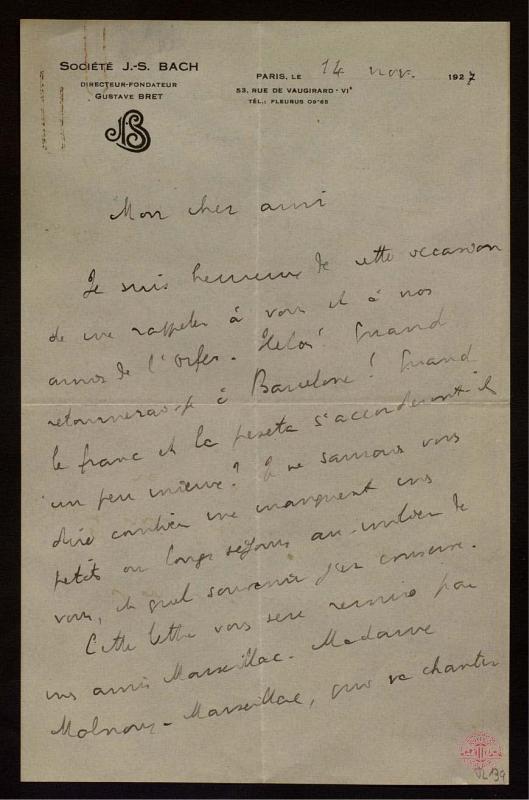 SOCIÉTÉ J.-S. BACH
DIRECTEUR-FONDATEUR
GUSTAVE BRET
JSB
PARIS, LE 14 nov. 1927
53, RUE DE VAUGIRARD - VIe
TÉL.: FLEURUS 09-65
Mon cher ami
Je suis heureux de cette occasion
de me rappeler à vous et à nos
amis de l'Orfeo. Hélas! Quand
retournerai-je à Barcelone! Quand
le franc et la peseta s'accorderont-ils
un peu mieux? Je ne saurais vous
dire combien me manquent mes
petits ou longs séjours au milieu de
vous, et quel souvenir j'en conserve.
Cette lettre vous sera remise par
mes amis Marseillac. Madame
Malnory-Marseillac, qui va chanter